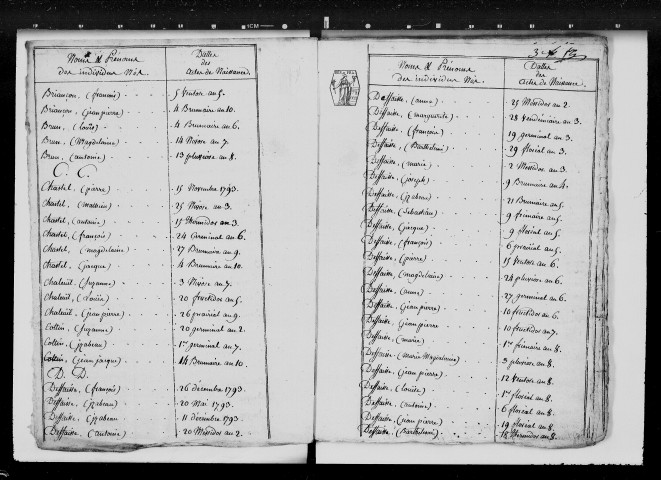 Noms & Prénoms
des individus Nés.
Dattes
des
actes de Naissance.
Briançon, (françois) 5 Ventose an 5.
Briançon, (jean pierre) 4 Brumaire an 10.
Brun, (Louis) 4 Brumaire an 6.
Brun, (Magdelaine) 14 Nivose an 7.
Brun, (antoine) 13 pluviose an 8.
C. C.
Chastel, (pierre) 15 Novembre 1793.
Chastel, 25 Nivose an 3.
Chastel, (antoine) 15 Thermidor an 3.
Chastel, (françois) 24 Germinal an 6.
Chastel, (magdelaine) 27 Brumaire an 9.
Chastel, (jacques) 4 Brumaire an 10.
(Suzanne) 3 Nivose an 7.
(Louise) 20 fructidor an 5.
(jean pierre) 26 prairial an 9.
Collin, (suzanne) 20 germinal an 2.
Collin, (izabeau) 1er germinal an 7.
Collin, (jean jacques) 14 Brumaire an 10.
D. D.
Deffaisse, (françois) 26 décembre 1793.
Deffaisse, (izabeau) 20 Mai 1793.
Deffaisse, (izabeau 11 décembre 1793.
Deffaisse, (antoine) 20 Messidor an 2.
Noms & Prénoms
des individus Nés.
Dattes
des
actes de Naissance.
Deffaisse, (anne) 25 Messidor an 2.
Deffaisse, (marguerite) 28 Vendémiaire an 3.
Deffaisse, (françois) 19 germinal an 3.
Deffaisse, (Barthelemi) 29 floréal an 3.
Deffaisse, (marie) 2 Messidor an 3.
Deffaisse, (joseph) 9 Brumaire an 4.
Deffaisse, (izabeau) 21 Brumaire an 5.
Deffaisse, (Sebastien) 9 frimaire an 5.
Deffaisse, (jacques) 9 floréal an 5.
Deffaisse, (françois) 6 prairial an 5.
Deffaisse, (pierre) 15 Ventose an 6.
Deffaisse, (magdelaine) 24 pluviose an 6.
Deffaisse, (anne) 27 germinal an 6.
Deffaisse, (jean pierre) 10 fructidor an 6.
Deffaisse, (jean pierre 10 fructidor an 7.
Deffaisse, (marie) 1er frimaire an 8.
Deffaisse, (marie Magdelaine) 5 pluviose an 8.
Deffaisse, (jean pierre) 12 Ventose an 8.
Deffaisse, (louise) 1er floréal an 8.
Deffaisse, (antoine) 6 floréal an 8.
Deffaisse, (jean pierre) 19 floréal an 8.
Deffaisse, (Barthelemi) 18 Thermidor an 8.